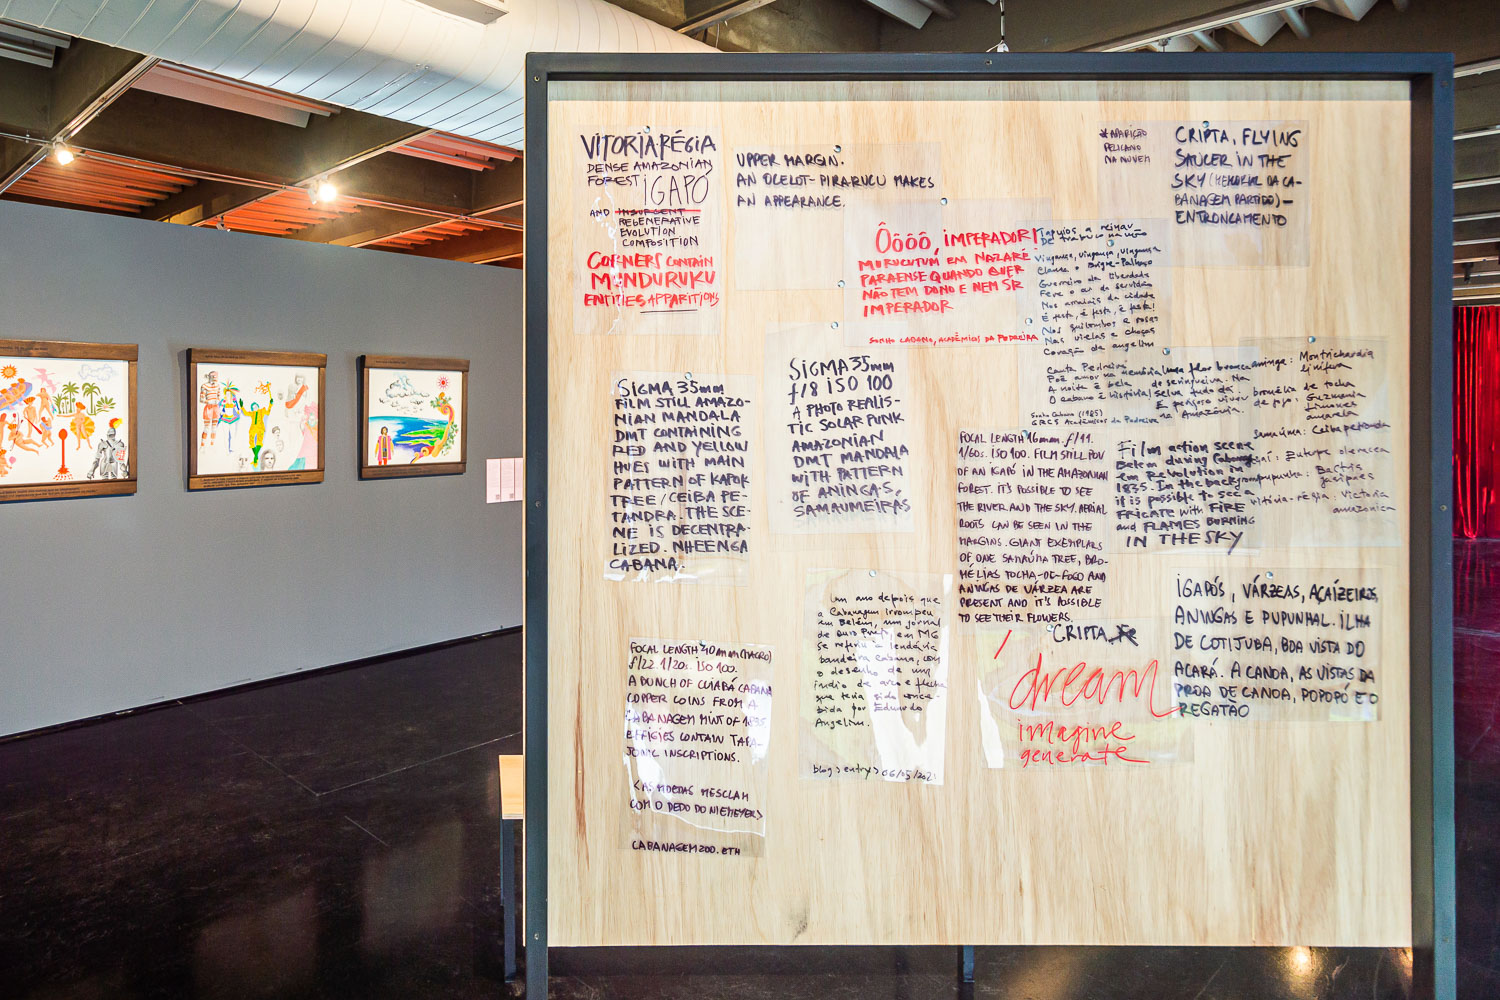 VITORIA-RÉGIA
DENSE AMAZONIAN
FOREST IGAPÓ
AND INSURGENT
REGENERATIVE
EVOLUTION
COMPOSITION
CORNERS CONTAIN
MUNDURUKU
ENTITIES APPARITIONS
UPPER MARGIN.
AN OCELOT-PIRARUCU MAKES
AN APPEARANCE.
*APARIÇÃO
PELICANO
NA NUVEM
CRIPTA, FLYING
SAUCER IN THE
SKY (MEMORIAL DA CA-
BANAGEM PARTIDO)—
ENTRONCAMENTO
Ôôôô, IMPERADOR!
MURUCUTUM EM NAZARÉ
PARAENSE QUANDO QUER
NÃO TEM DONO E NEM SR
IMPERADOR
SONHO CABANO, ACADÊMICOS DA PEDREIRA
Tapuios a reinar
DE trabuco na mão
Vingança, vingança, vingança
Clama o brigue-Palhaço
Guerreiro da liberdade
Fere o ar da servidão
Nos arraiais da cidade
É festa, é festa, é festa!
Nos quilombos e rosas
Nas vielas e choças
Coração de angelim
Canta Pedreira
Põe amor na memória
A noite é bela
O cabano é história
Sonho Cabano (1985)
GRCS Acadêmicos da Pedreira
uma flor branca
de seringueira. Na
selva tudo dá
E penso viver
na Amazônia.
aninga: Montrichardia
linifera
bromélia de tocha
de fogo: Guzmania
amarela
samaúma: Ceiba pentandra
açaí: Euterpe oleracea
pupunha: Bactris
gasipaes
vitória-régia: Victoria
amazonica
SIGMA 35mm
FILM STILL AMAZO-
NIAN MANDALA
DMT CONTAINING
RED AND YELLOW
HUES WITH MAIN
PATTERN OF KAPOK
TREE/CEIBA PE-
TANDRA. THE SCE-
NE IS DECENTRA-
LIZED. NHEENGA
CABANA.
SIGMA 35mm
f/8 ISO 100
A PHOTO REALIS-
TIC SOLAR PUNK
AMAZONIAN
DMT MANDALA
WITH PATTERN
OF ANINGAS,
SAMAUMEIRAS
FOCAL LENGTH 16mm. f/11.
1/60s. ISO 100. FILM STILL POV
OF AN IGAPÓ IN THE AMAZONIAN
FOREST. IT'S POSSIBLE TO SEE
THE RIVER AND THE SKY. AERIAL
ROOTS CAN BE SEEN IN THE
MARGINS. GIANT EXEMPLARS
OF ONE SAMAÚMA TREE, BRO-
MÉLIAS TOCHA-DE-FOGO AND
ANINGAS DE VÁRZEA ARE
PRESENT AND IT'S POSSIBLE
TO SEE THEIR FLOWERS.
Film action scene
Belém during Cabana-
gem Revolution in
1835. In the background
it is possible to see a
FRIGATE with FIRE
and FLAMES BURNING
IN THE SKY
FOCAL LENGTH 40mm (MACRO)
f/22. 1/20s. ISO 100.
A BUNCH OF CUIABÁ CABANA
COPPER COINS FROM A
CABANAGEM MINT OF 1835
EFFIGIES CONTAIN TAPA-
JONIC INSCRIPTIONS.
<AS MOEDAS MESCLAM
COM O DEDO DO NIEMEYER>
CABANAGEMZOO.ETH
Um ano depois que
a Cabanagem irrompeu
em Belém, um jornal
de Ouro Preto, em MG
se referiu à lendária
bandeira Cabana, com
o desenho de um
índio de arco e flecha
que teria sido conce-
bida por Eduardo
Angelim.
blog>entry>06/05/2021
CRIPTA
/dream
imagine
generate
IGAPÓS, VÁRZEAS, AÇAÍZEIROS,
ANINGAS E PUPUNHAL. ILHA
DE COTIJUBA, BOA VISTA DO
ACARÁ. A CANOA, AS VISTAS DA
PROA DE CANOA, POPOPÔ E O
REGATÃO